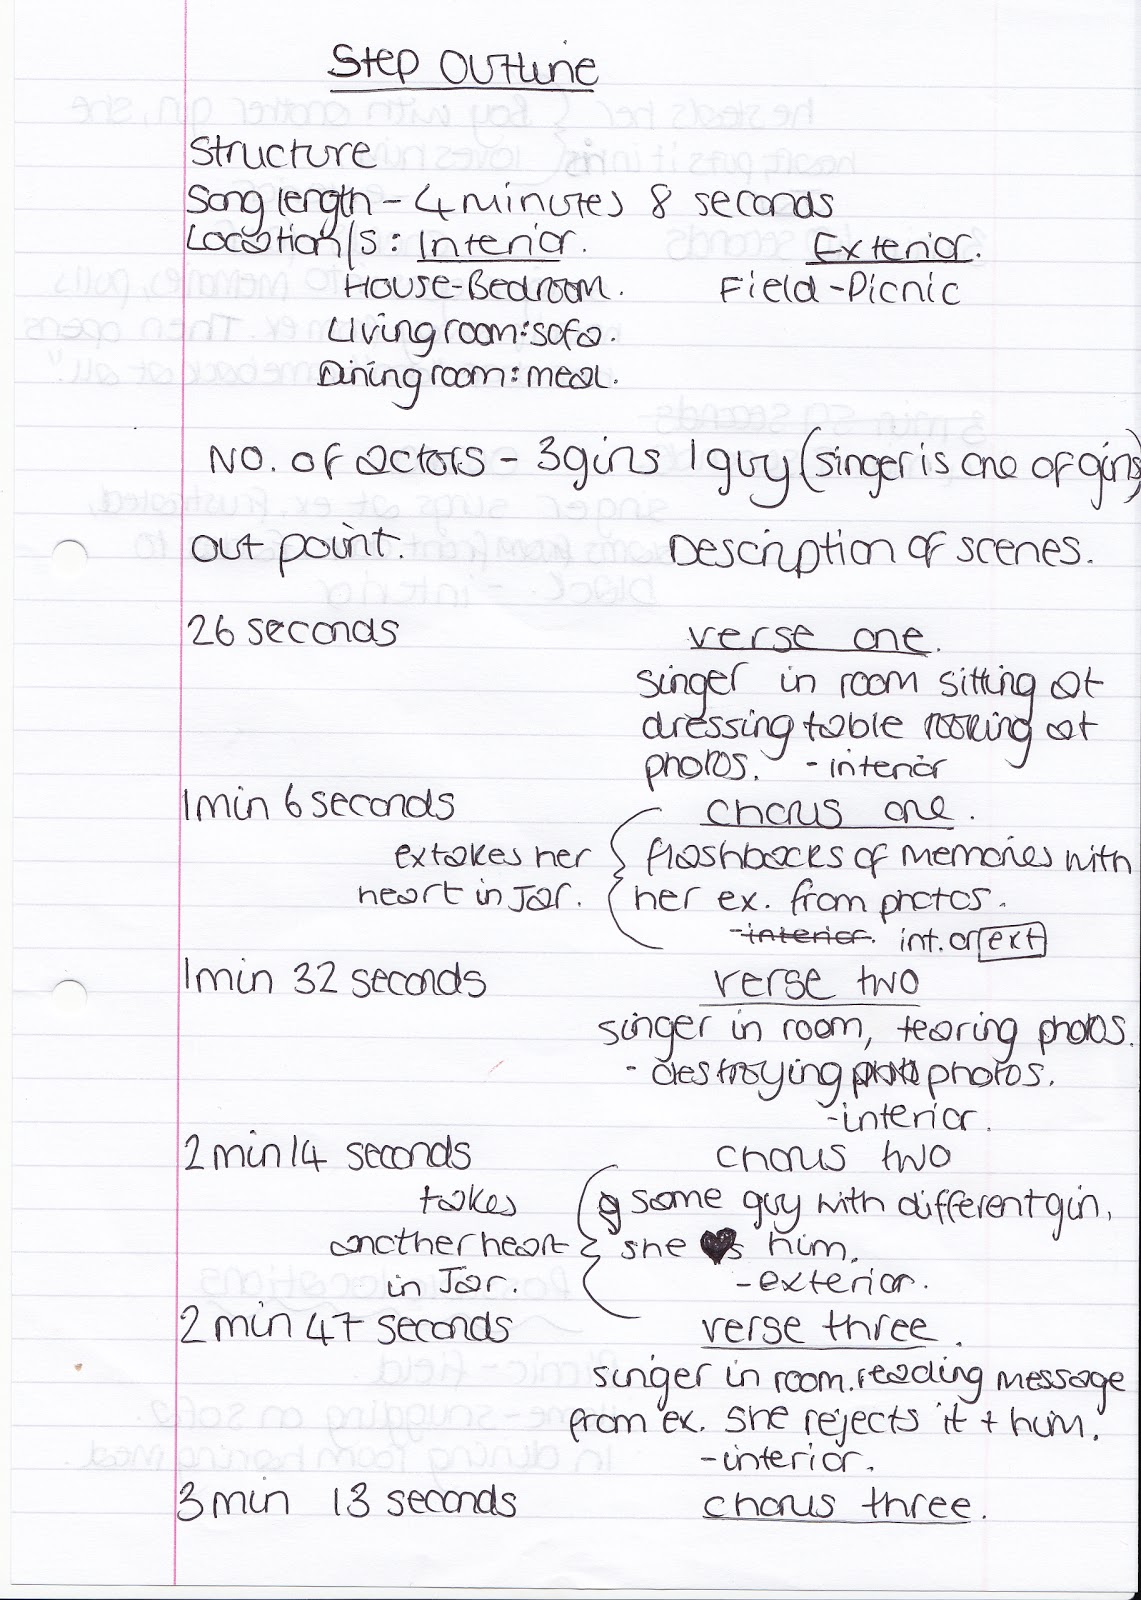 Step Outline
Structure
Song length - 4 minutes 8 seconds
Location/s: Interior. Exterior.
House-Bedroom. Field-Picnic
Living room: sofa.
Dining room: meal.
No. of actors - 3 girls 1 guy (singer is one of girls)
out point. Description of scenes.
26 seconds verse one.
singer in room sitting at
dressing table looking at
photos. -interior
1min 6 seconds chorus one.
ex takes her flashbacks of memories with
heart in Jar. her ex. from photos.
-interior. int. or ext
1min 32 seconds verse two
singer in room, tearing photos.
- destroying photos.
-interior.
2 min 14 seconds chorus two
takes same guy with different girl,
another heart she ♥s him.
in Jar. -exterior.
2 min 47 seconds verse three.
singer in room. reading message
from ex. She rejects it + him.
-interior.
3 min 13 seconds chorus three.